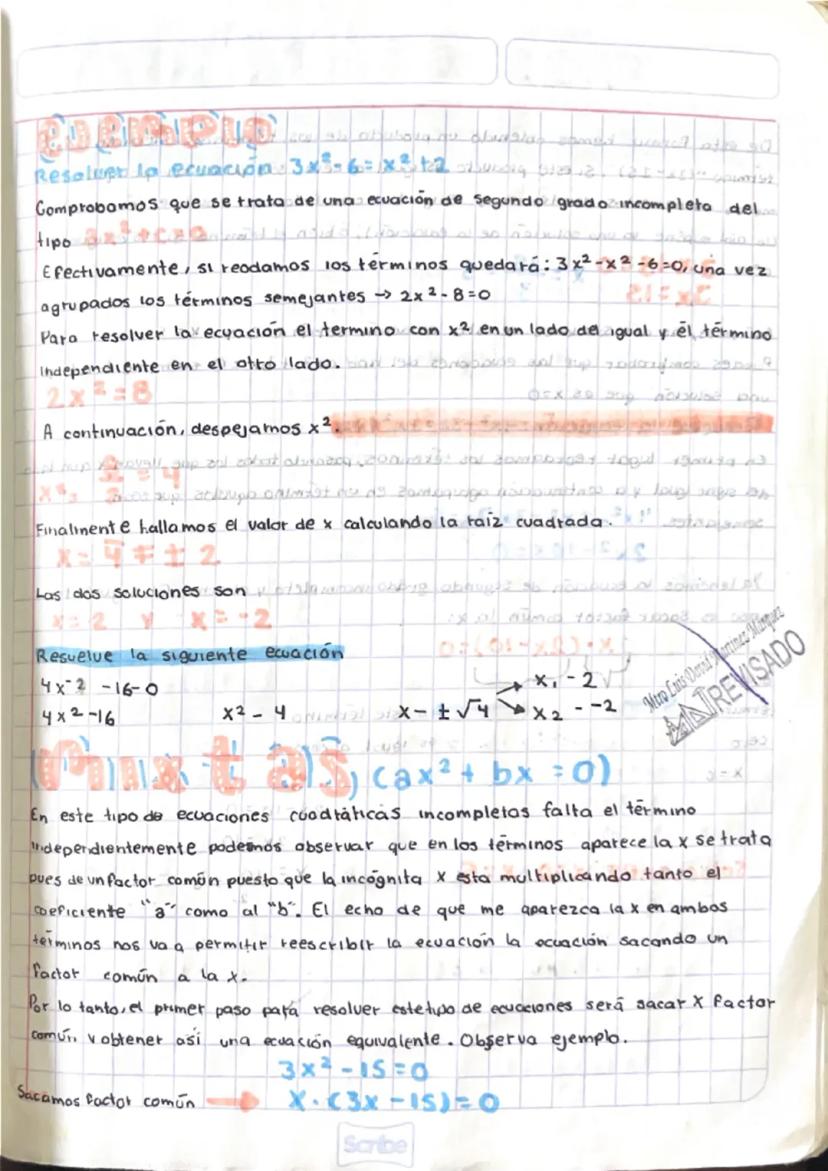 Ejemplo
Resolver la ecuación 3x²-6=x²+2
Comprobamos que se trata de una ecuación de segundo grado incompleta del
tipo ax²+c=0
Efectivamente, si reodamos los términos quedará: 3x²-x²-6=0, una vez
agrupados los términos semejantes → 2x²-8=0
Para resolver la ecuación el termino con x² en un lado del igual y el término
independiente en el otro lado.
2x²=8
A continuación, despejamos x².
Finalmente hallamos el valor de x calculando la raiz cuadrada.
Las dos soluciones son
x=2 y x=-2
Resuelve la siguiente ecuación
4x-² -16-0
4x²-16 x²-4 x-±√4 x₁-2
x₂--2
Mtro Luis David Martinez Márquez
REVISADO
Mixtas, (ax²+bx=0)
En este tipo de ecuaciones cuadráticas incompletas falta el término
independientemente podemos observar que en los términos aparece la x se trata
pues de un factor común puesto que la incógnita x esta multiplicando tanto el
coeficiente "a" como al "b". El echo de que me aparezca la x en ambos
términos nos va a permitir reescribir la ecuación la ecuación sacando un
factor común a la x.
Por lo tanto, el primer paso para resolver este tipo de ecuaciones será sacar x factor
común y obtener así una ecuación equivalente. Observa ejemplo.
3x²-15=0
Sacamos factor común → x.(3x-15)=0
Scribe